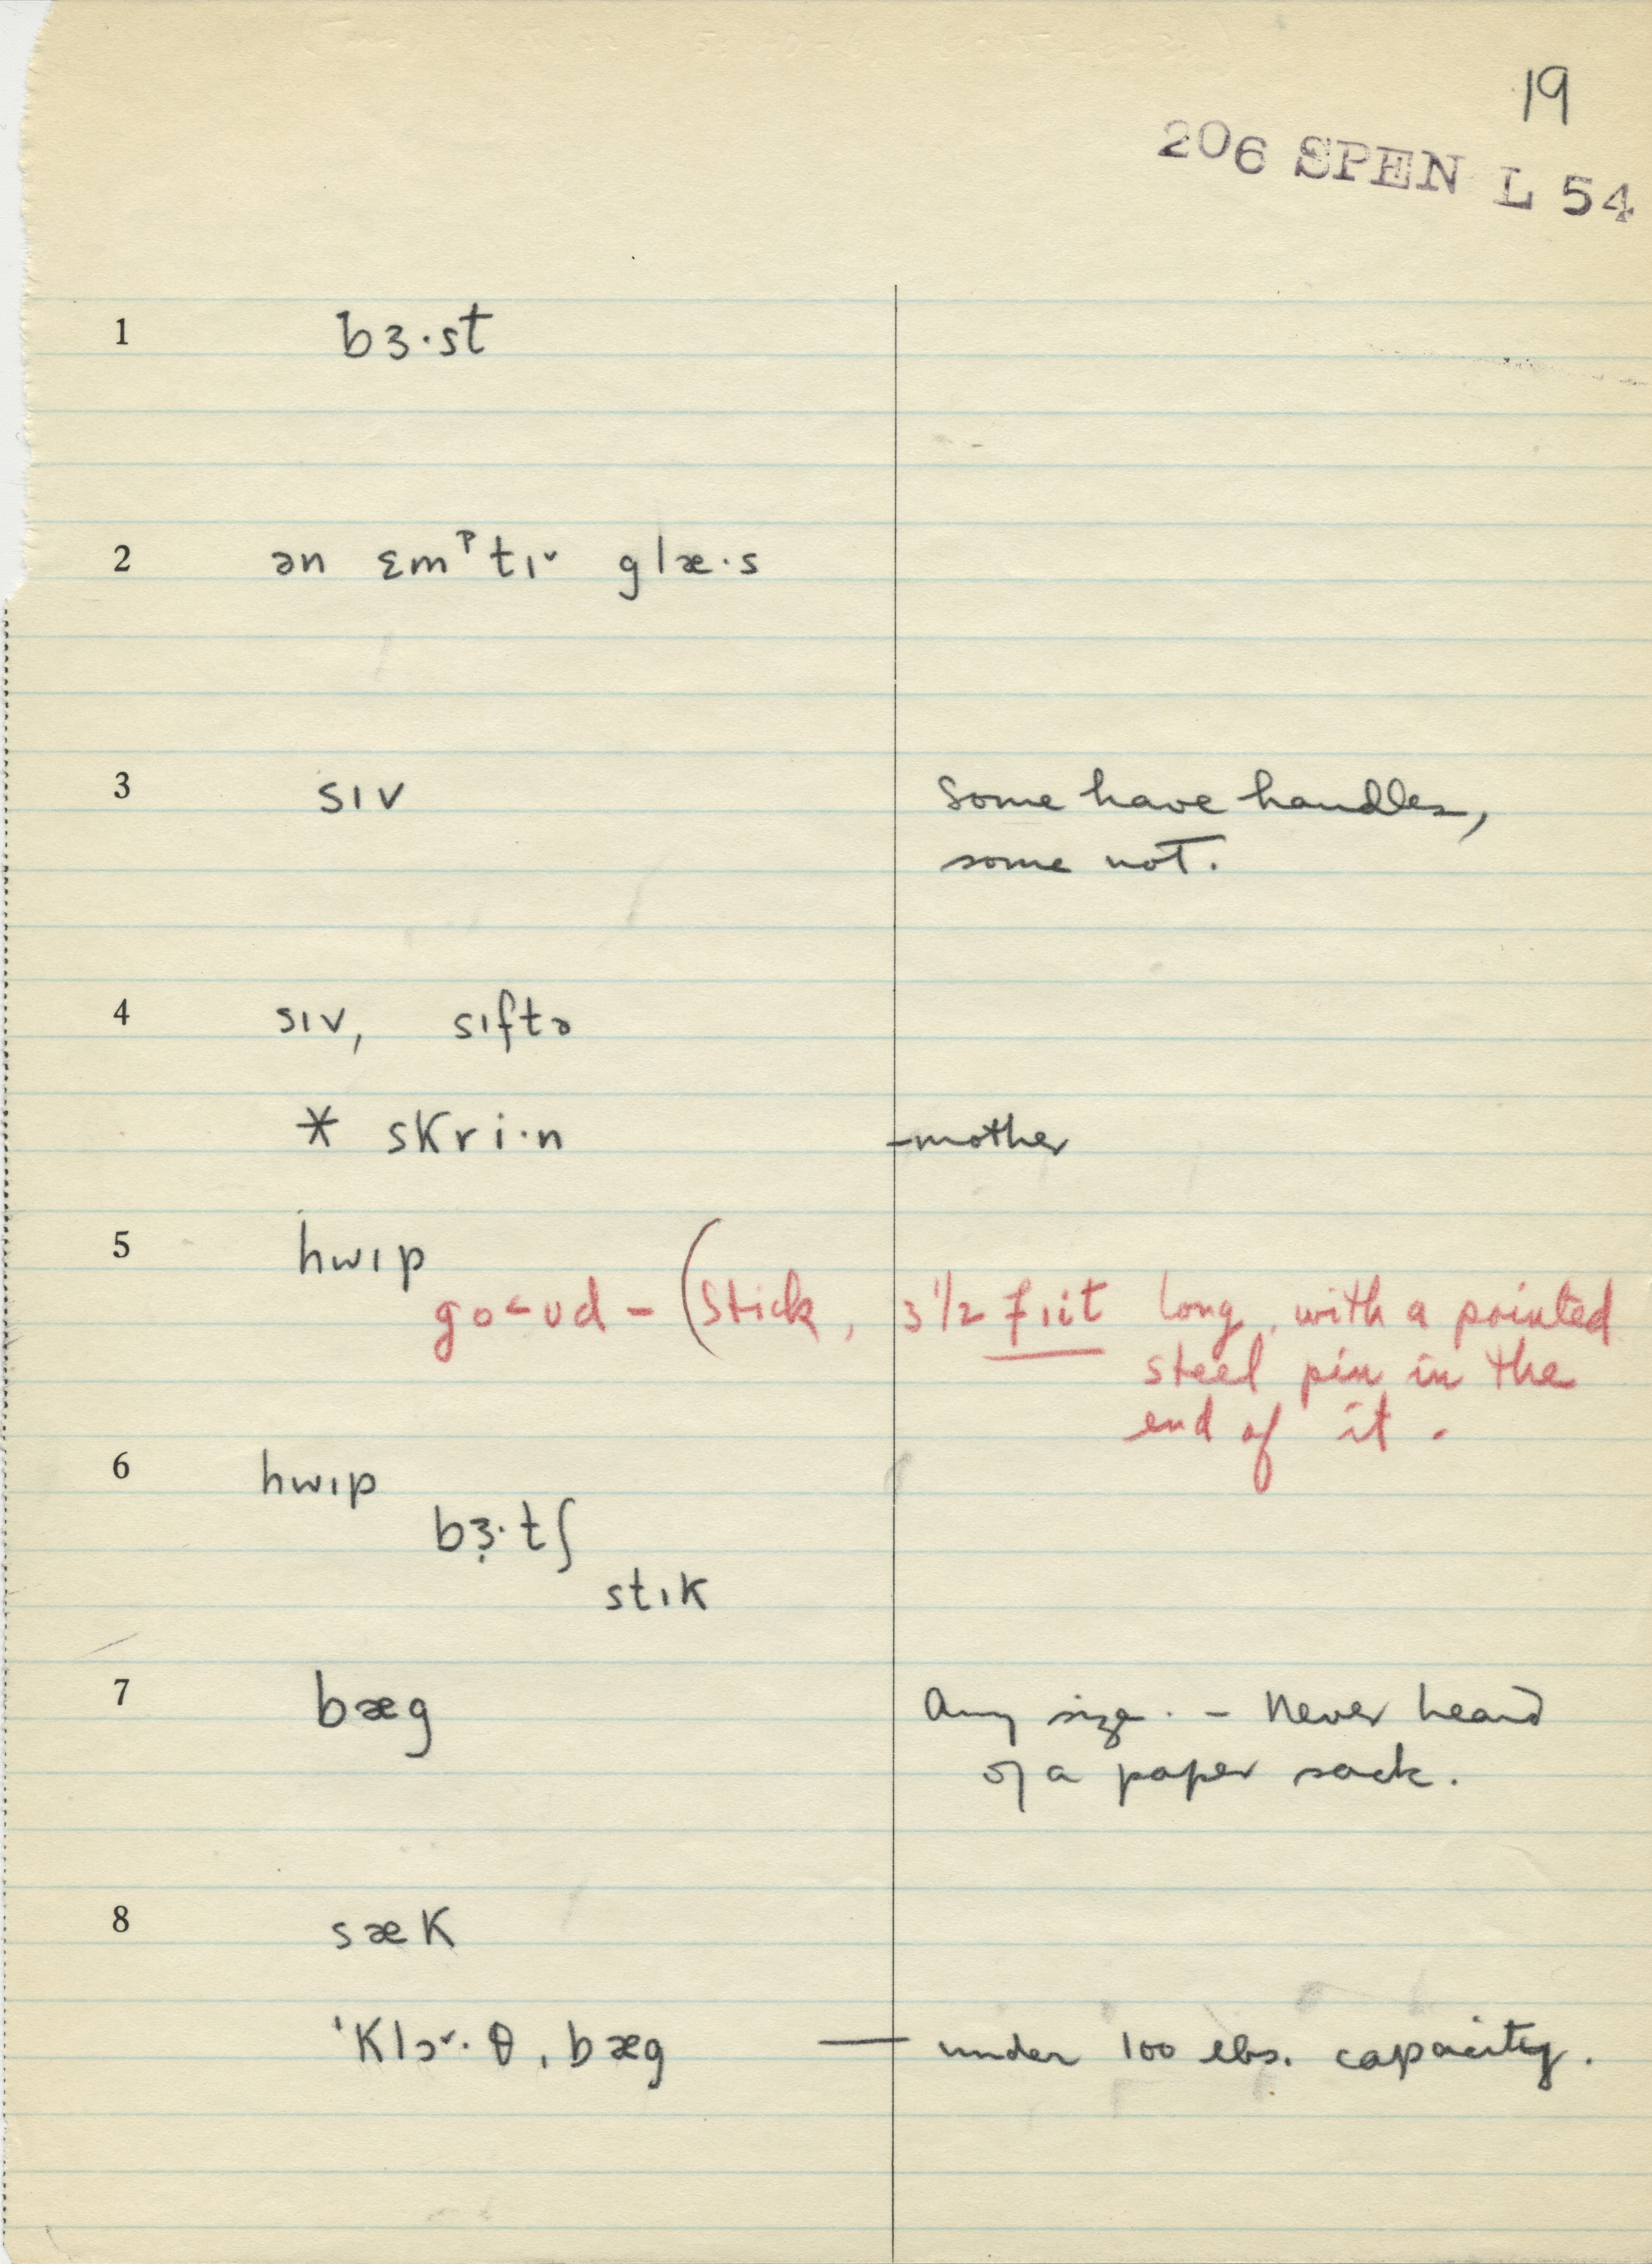 19
206 SPEN L 54
1 bɜ·st
2 ən ɛmᵖtɪ˅ glæ·s
3 sɪv some have handles,
some not.
4 sɪv, sɪftə
* skri·n – mother
5 hwɪp
go˂ʊd – (stick, 3 1/2 fɪit long, with a pointed
steel pin in the
end of it.
6 hwɪp
bɜ̣·tʃ
stɪk
7 bæg any size. – Never heard
of a paper sack.
8 sæk
ˈklɔ˅·θˌbæg — under 100 lbs. capacity.